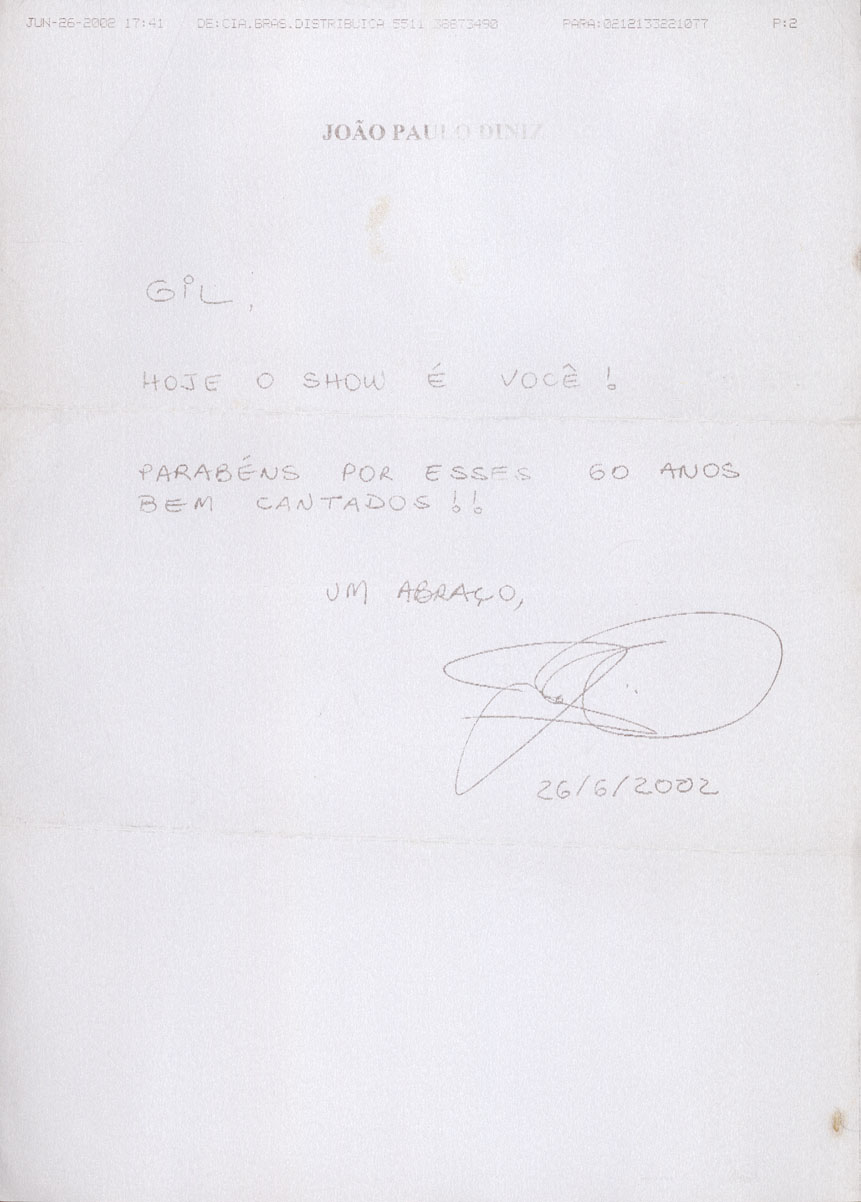 JUN-26-2002 17:41 DE:CIA.BRAS.DISTRIBUICA 5511 38873490 PARA:0212133221077 P:2
JOÃO PAULO DINIZ
GIL,
HOJE O SHOW É VOCÊ !
PARABÉNS POR ESSES 60 ANOS
BEM CANTADOS !!
UM ABRAÇO,
26/6/2002